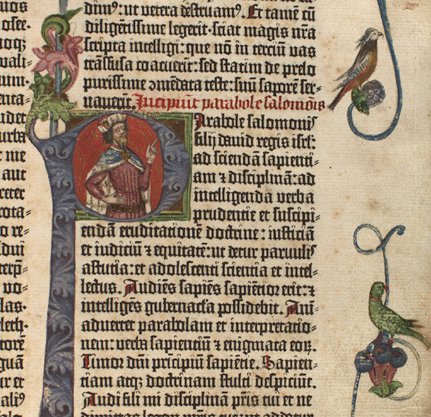 dim⁹: ut vetera destruam⁹. Et tamē cū
diligētissime legerit· sciat magis nr̄a
scripta intelligi: que nō in terciū vas
trāsfusa coacuerīt: sed statim de prelo
purissime ꝯmēdata teste: suū saporē ser-
vaverīt. Incipiūt parabole salomonis
Parabole salomonis
filij david regis isrl̄:
ad sciendā sapienti-
am ⁊ disciplinā: ad
intelligenda verba
prudentie et suscipi-
endā eruditationē doctrine: iusticiā
et iudiciū ⁊ equitatē: ut detur parvulis
astutia: et adolescenti scientia et intel-
lectus. Audiēs sapiēs sapiētior erit: ⁊
intelligēs gubernacla possidebit. Ani-
advertet parabolam et interpretatio-
nem: verba sapientiū ⁊ enigmata eorū.
Timor dn̄i principiū sapiētie. Sapien-
tiam atq; doctrinam stulti despiciūt.
Audi fili mi disciplinā pr̄is tui et ne